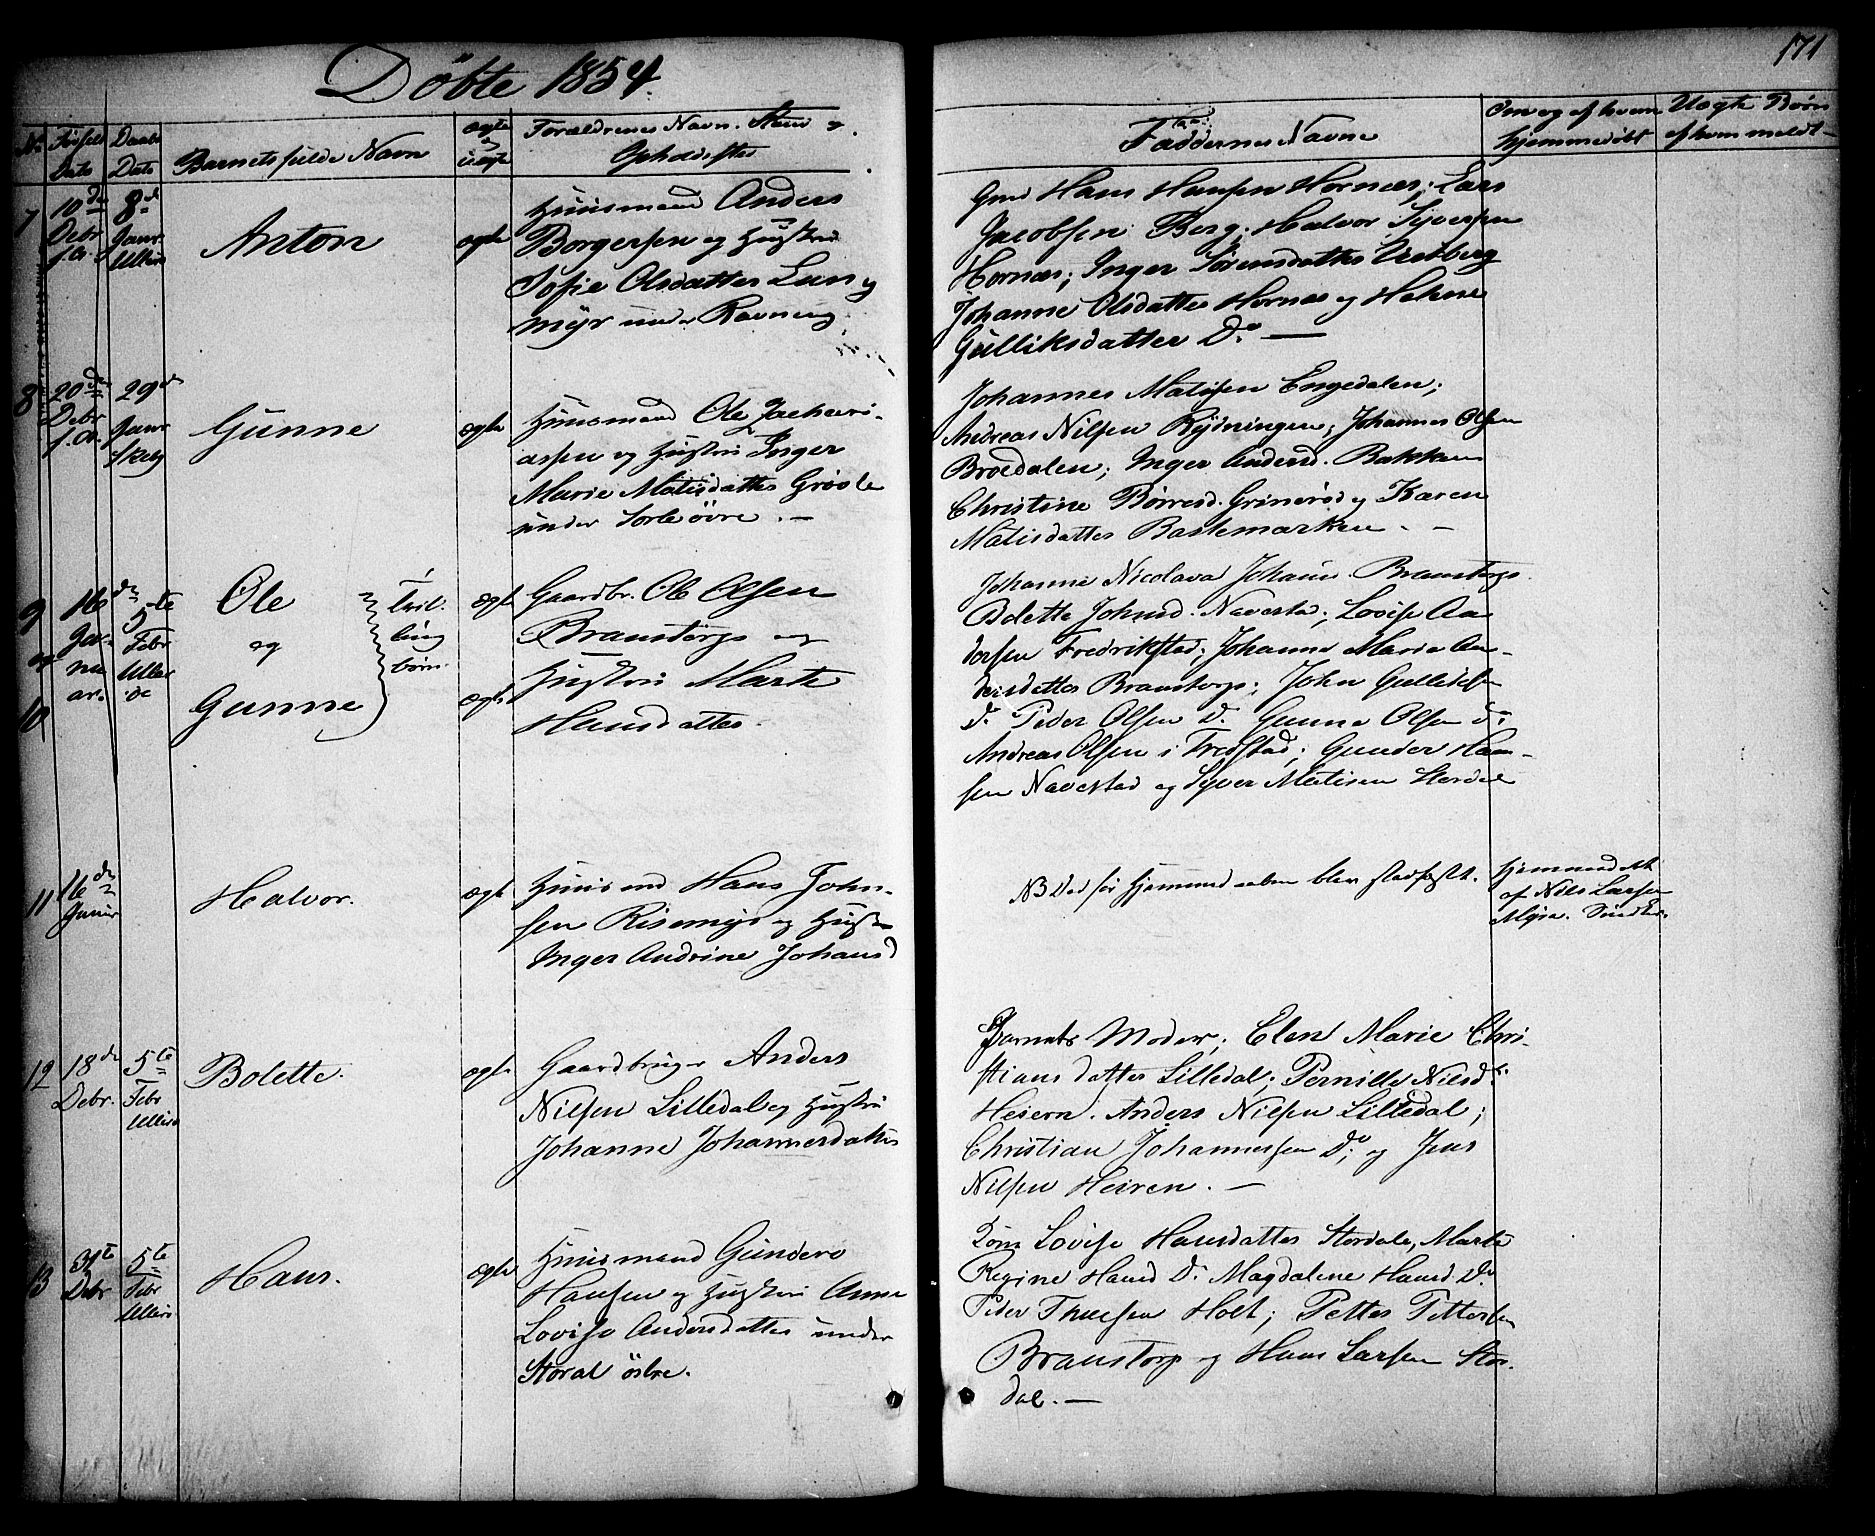 Döbte 1854.
171
No
Födsels Dato
Daabs Dato
Barnets fulde Navn
ægte og uægte
Forældrenes Navn. Stand og Opholdssted
Faddernes Navne
Om og af hvem hjemmedöbt
Uægte Börn af hvem meldt
7
10de Debr f.A.
8de Janr Ullerö
Anton
ægte
Huusmand Anders
Borgersen og Hustru
Sofie Olsdatter Lang
myr under Ravneng
Gmd Hans Hansen Hornæs; Lars
Jacobsen Berg; Halvor Syversen
Hornæs; Inger Sörensdatter Vestberg
Johanne Olsdatter Hornæs og Helene
Gulliksdatter Do. —
8
20de Debr f.A.
29de Janr Skeb
Gunne
ægte
Huusmand Ole Zachari-
assen og Hustru Inger
Marie Matisdatter Gröile
under Sorbeövre. —
Johannes Matisen Engedalen;
Andreas Nilsen Rydningen; Johannes Olsen
Broedalen; Inger Andersd. Bakken
Christine Börresd. Grimsröd og Karen
Matisdatter Bastemarken. —
9 og 10
16de Januar.
5te Febr Ulleröe
Ole
og
Gunne
Tvil-
ling
börn.
ægte
ægte
Gaardbr. Ole Olsen
Bramstorp og
Hustru Marte
Hansdatter.
Johanne Nicolava Johans. Bramstorp.
Bolette Johnsd. Navestad; Lovise An
dersen Fredrikstad; Johanne Marie An-
dersdatter Bramstorp; John Gulliksen
Do. Peder Olsen Do. Gunne Olsen do;
Andreas Olsen i Fredstad; Gunder Han-
sen Navestad og Syver Matisen Stordal
11
16de Januar
Halvor.
ægte
Huusmd Hans John-
sen Risemyr og Hustru
Inger Andrine Johansd
NB Död för Hjemmedaaben blev stadfæstet.
Hjemmedöbt
af Nils Larsen
Myra.
12
18de Debr.
5te Febr Ullerö
Bolette.
ægte
Gaardbruger Anders
Nilsen Lilledal og Hustru
Johanne Johannesdatter
Barnets Moder; Elen Marie Chri-
stiansdatter Lilledal; Pernille Nilsd.
Heiern. Anders Nilsen Lilledal;
Christian Johannessen Do; og Jens
Nilsen Heiren. —
13
31te Debr
5te Febr Ullerö
Hans.
ægte
Huusmand Gundero
Hansen og Hustru Anne
Lovise Andersdatter under
Storal östre.
Lovise Hansdatter Stordale, Marte
Regine Hansd Do. Magdalene Hansd Do.
Peder Thuesen Holt; Petter Pettersen
Bramstorp og Hans Larsen Stor-
dal. —